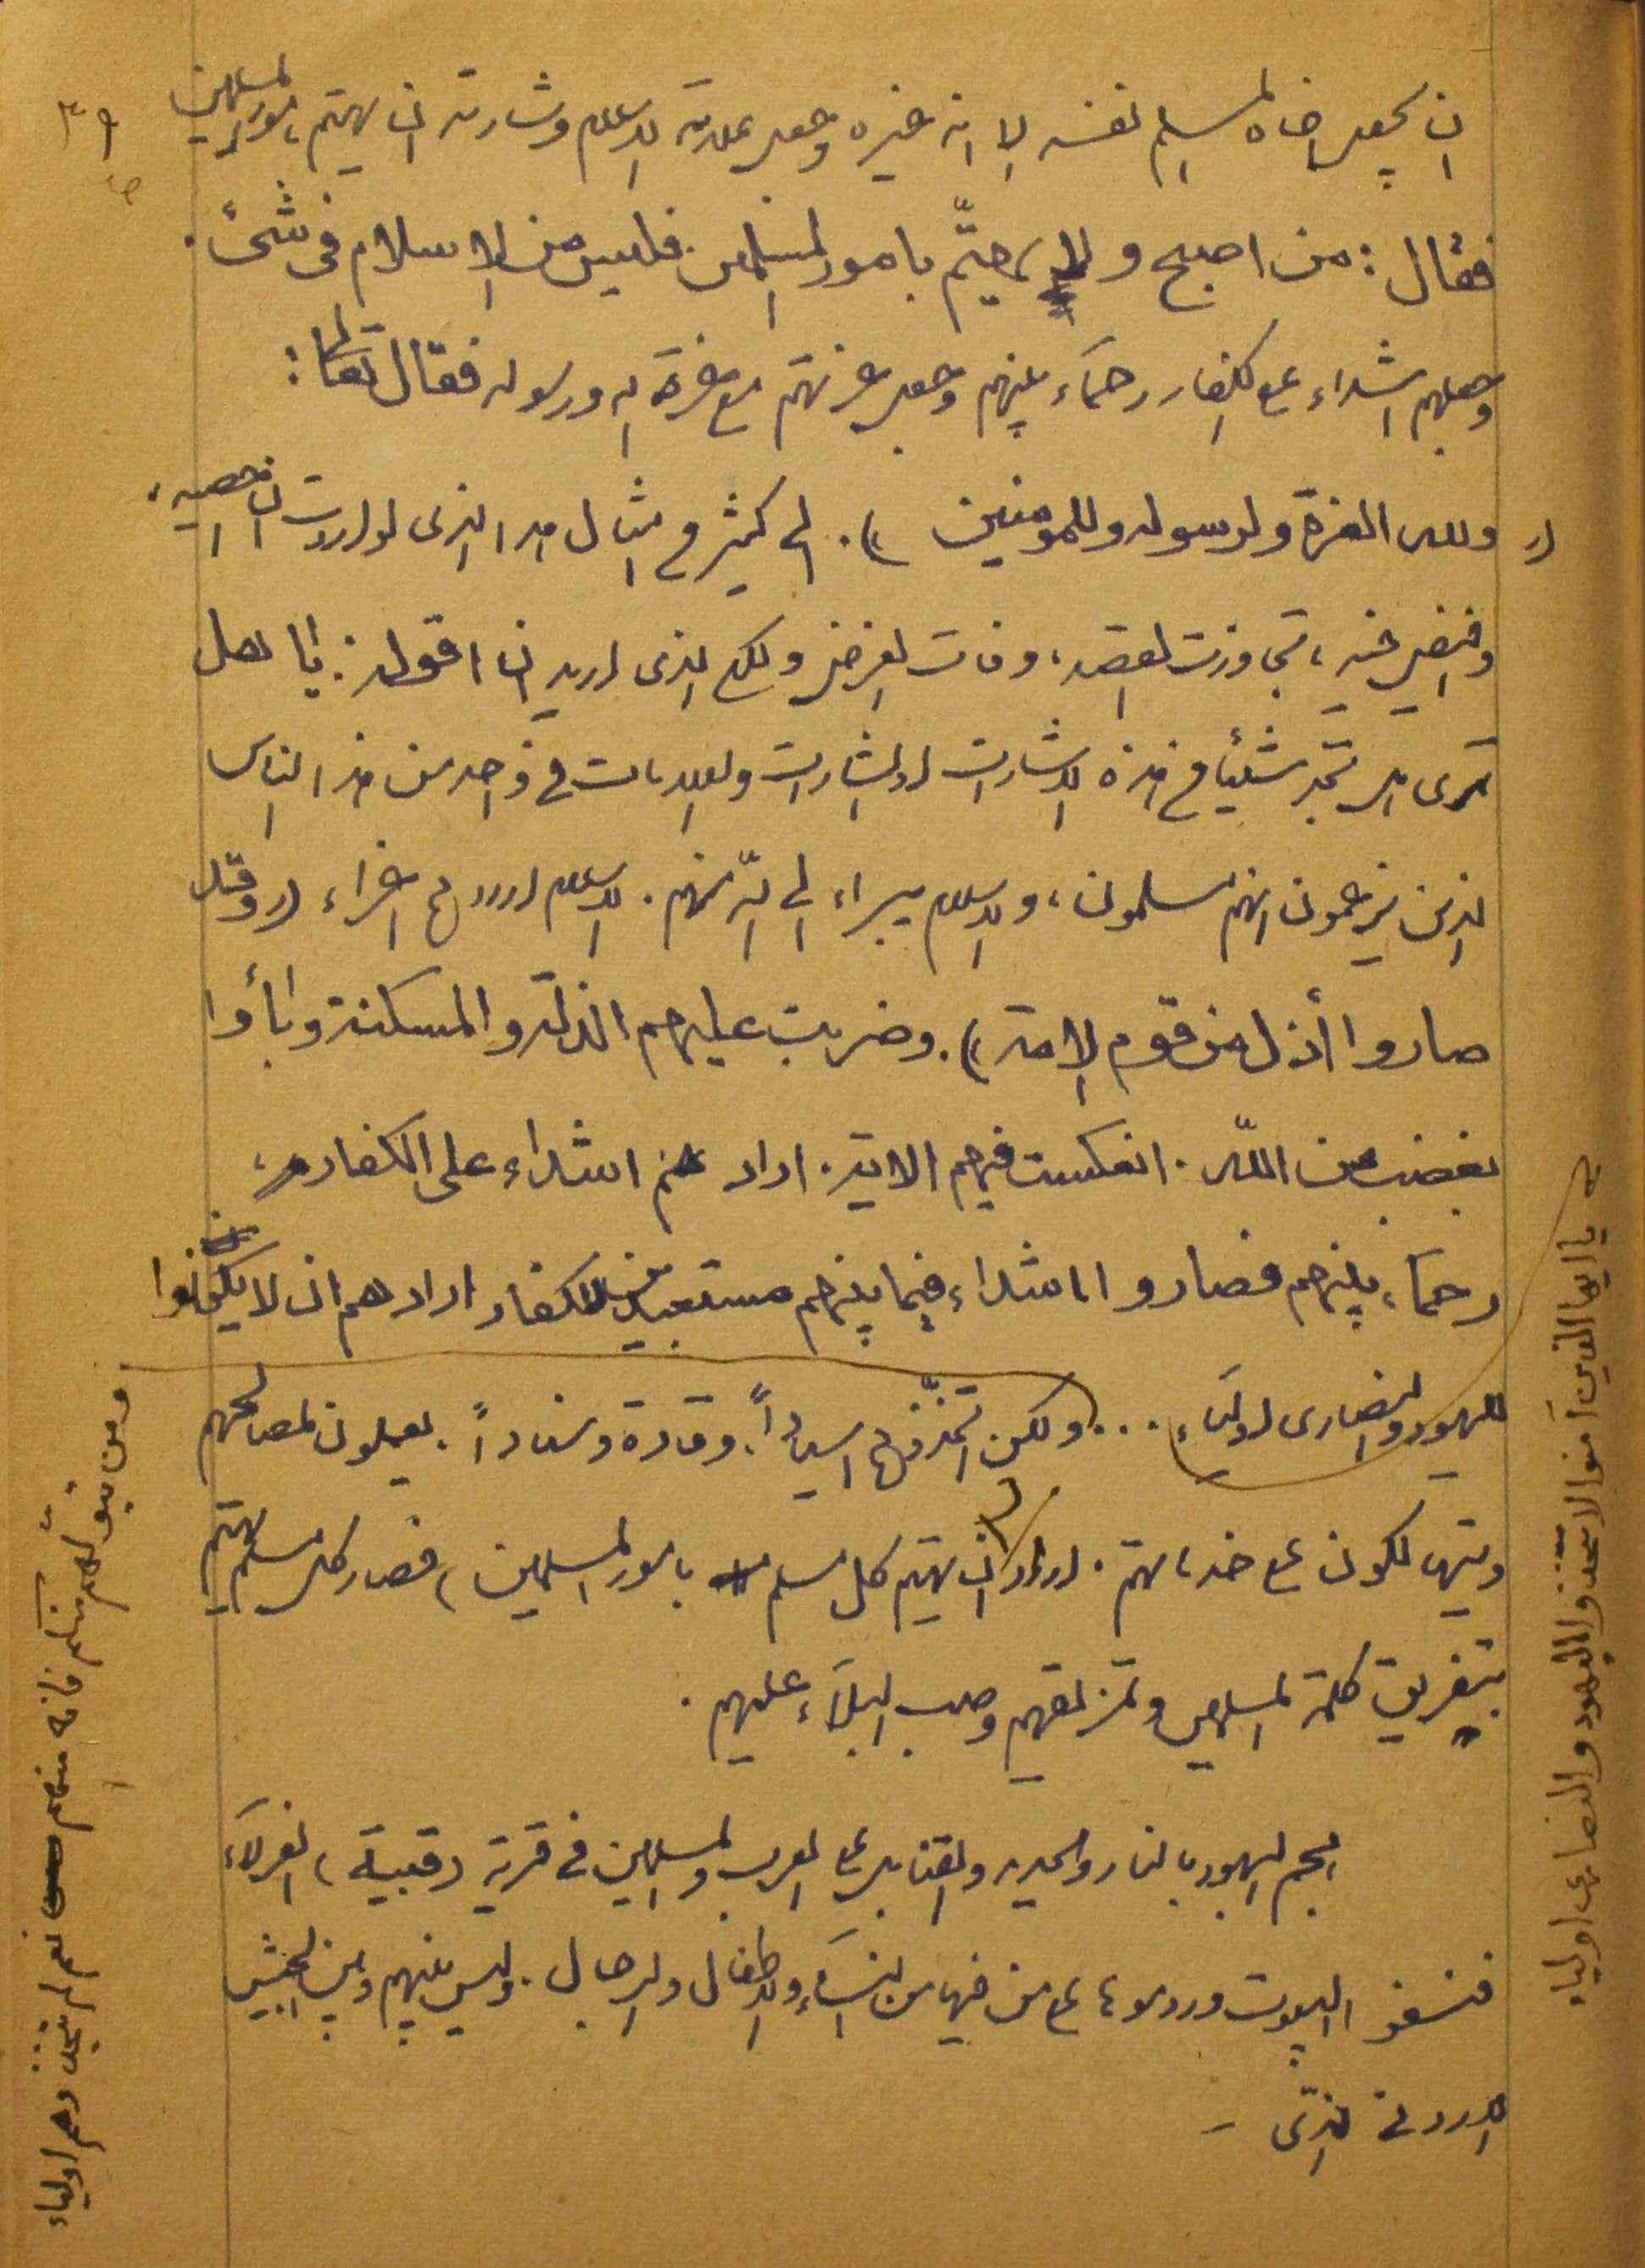 ٣٩
ان يجعل اخاه المسلم نفسه الا انه غيره وجعل علامة الاسلام وشارته ان يهتم بامور المسلمين
فقال: من اصبح ولا يهتمّ بامور المسلمين فليس من الاسلام فى شئ.
وجعلهم اشداء على الكفار رحماء بينهم وجعل عزتهم مع عزة الله ورسوله فقال تعالى:
(( ولله العزة ولرسوله وللمومنين )). الى كثير من امثال هذا الذى لو اردت ان احصيه،
وافيض فيه، تجاوزت القصد، وفات الغرض ولكن الذى اريد ان اقول: يا هل
ترى هل تجد شيئا من هذه الاشارات او الشارات والعلامات فى واحد من هذا الناس
الذين يزعمون انهم مسلمون، والاسلام يبراء الى الله منهم. الاسلام اراد هم اعزاء (( وقد
صاروا أذل من قوم الامة )). وضربت عليهم الذلة والمسكنة وبأوا
بغضب من اللّه. انعكست فيهم الاية. اراد هم اشداء على الكفار،
رحماء بينهم فصاروا اشداء فيما بينهم مستعبدين للكفار اراد هم ان لا يكونوا
لليهود والنصارى اولياء ... ولكن اتخذوهم اسياداً. وقادة وسناداً. يعملون لمصالحهم
ويتهالكون على خدماتهم. اراد ان يهتم كل مسلم بامور المسلمين، فصار كل مسلم يهتم
بتفريق كلمة المسلمين وتمزيقهم وصب البلاء عليهم.
هجم اليهود بالنار والحديد والقنابل على العرب والمسلمين فى قرية (قبية) العزلاء
فنسفوا البيوت وردموها على من فيها من النساء والاطفال والرجال. وليس بينهم وبين الجيش
الاردنى الذى –
يا ايها الذين آمنوا لا تتخذوا اليهود والنصارى اولياء
ومن يتولّهم منكم فانه منهم نعم لم نتخذ وهم اولياء